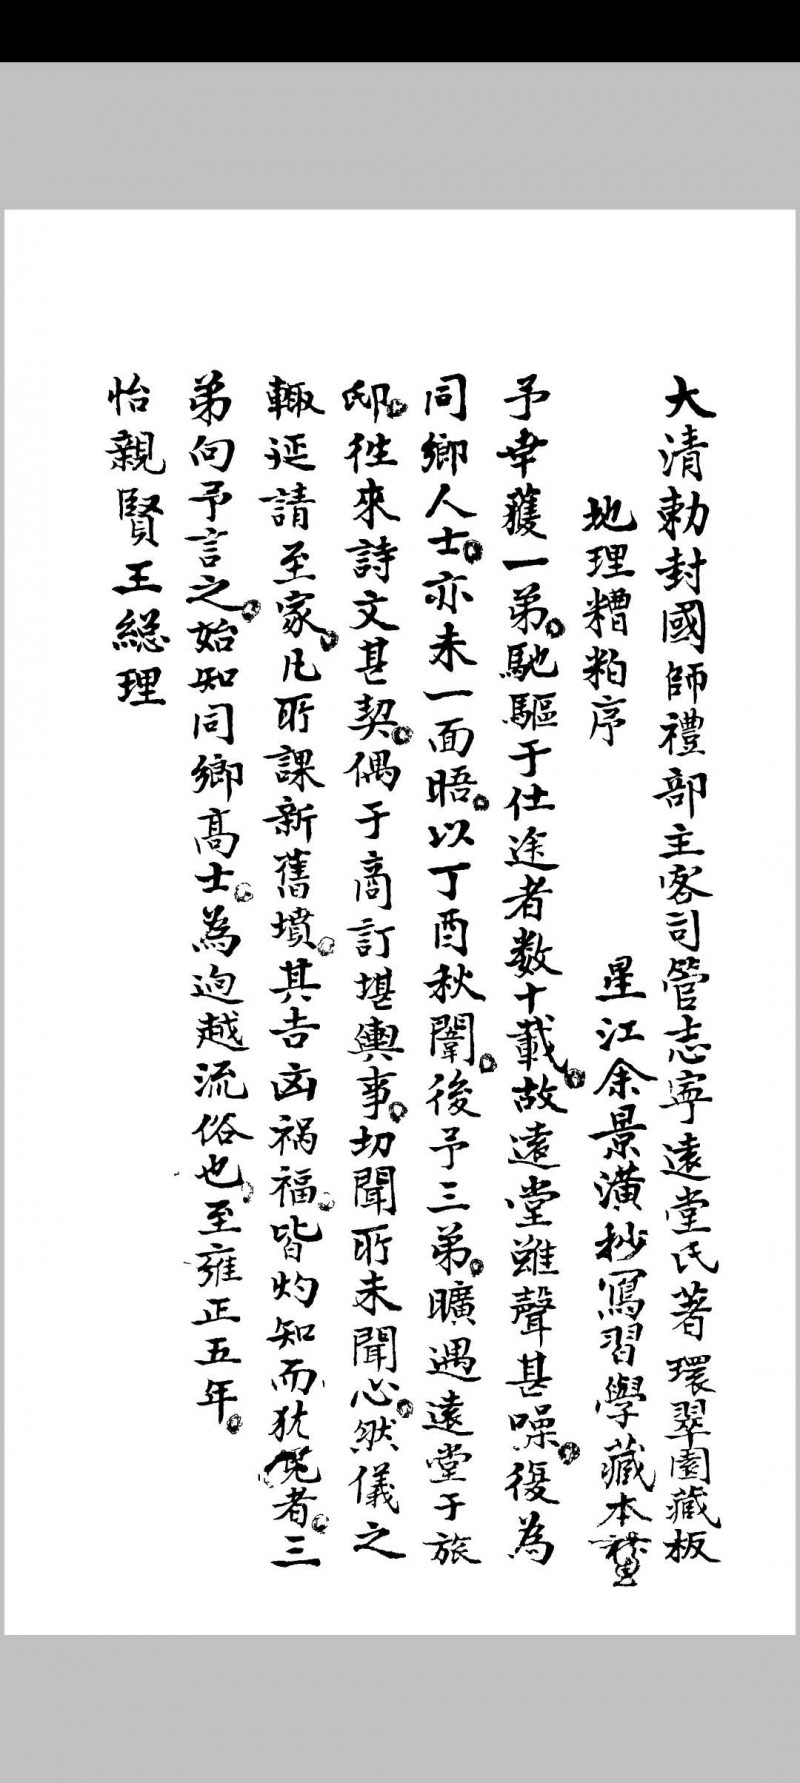 大清勅封國師禮部主客司管志寧遠堂氏著環翠園藏板
地理糟粕序
星江余景潢抄寫習學藏本
予幸獲一弟。馳驅于仕途者数十載。故遠堂雖聲甚噪。復為
同鄉人士。亦未一面晤。以丁酉秋闈。後予三弟。曠遇遠堂于旅
邸。徃來詩文甚契。偶于商訂堪輿事。切聞所未聞。心然儀之
輙延請至家。凡所課新舊墳。其吉凶祸福。皆灼知而犹見者。三
弟向予言之。始知同鄉高士。為逈越流俗也。至雍正五年。
怡親賢王総理